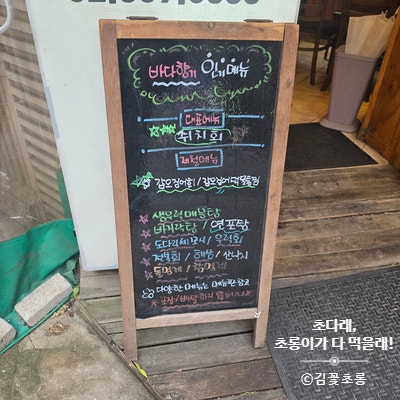 바다향기 인기메뉴
대표메뉴
쥐치회
제철메뉴
갑오징어회 / 갑오징어먹물통찜
생우럭매운탕
바지락탕 / 연포탕
도다리세꼬시 / 우럭회
전복회 / 해삼 / 산낙지
돌멍게 / 참멍게
다양한 메뉴는 메뉴판 참고
포장 / 배달
초다래,
초롱이가 다 먹을래!
©김꽃초롱